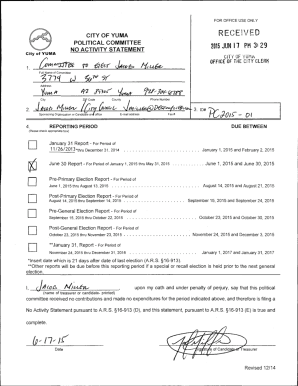 FOR OFFICE USE ONLY
CITY OF YUMA
POLITICAL COMMITTEE
NO ACTIVITY STATEMENT
City of YUMA
RECEIVED
2015 JUN 17 PM 3:29
CITY OF YUMA
OFFICE OF THE CITY CLERK
1. Committee to Elect Jacob Miller
Full Name of Committee
3774 W 20th St
Address
Yuma AZ 85365 Yuma
City ZIP Code County Phone Number
2. Jacob Miller / City Council
Sponsoring Organization or Candidate and office E-mail address Fax #
3. ID# PC2015-01
4. REPORTING PERIOD DUE BETWEEN
(Please check appropriate box)
January 31 Report - For Period of
11/26/2013 thru December 31, 2014 January 1, 2015 and February 2, 2015
June 30 Report - For Period of January 1, 2015 thru May 31, 2015 June 1, 2015 and June 30, 2015
Pre-Primary Election Report - For Period of
June 1, 2015 thru August 13, 2015 August 14, 2015 and August 21, 2015
Post-Primary Election Report - For Period of
August 14, 2015 thru September 14, 2015 September 15, 2015 and September 24, 2015
Pre-General Election Report - For Period of
September 15, 2015 thru October 22, 2015 October 23, 2015 and October 30, 2015
Post-General Election Report - For Period of
October 23, 2015 thru November 23, 2015 November 24, 2015 and December 3, 2015
**January 31, Report - For Period of
November 24, 2015 thru December 31, 2016 January 1, 2017 and January 31, 2017
*Insert date which is 21 days after date of last election (A.R.S. §16-913).
**Other reports will be due before this reporting period if a special or recall election is held prior to the next general
election.
I, Jacob Miller upon my oath and under penalty of perjury, say that this political
(name of treasurer or candidate, printed)
committee received no contributions and made no expenditures for the period indicated above, and therefore is filing a
No Activity Statement pursuant to A.R.S. §16-913 (D), and this statement, pursuant to A.R.S. §16-913 (E) is true and
complete.
6-17-15
Date Signature of Candidate or Treasurer
Revised 12/14